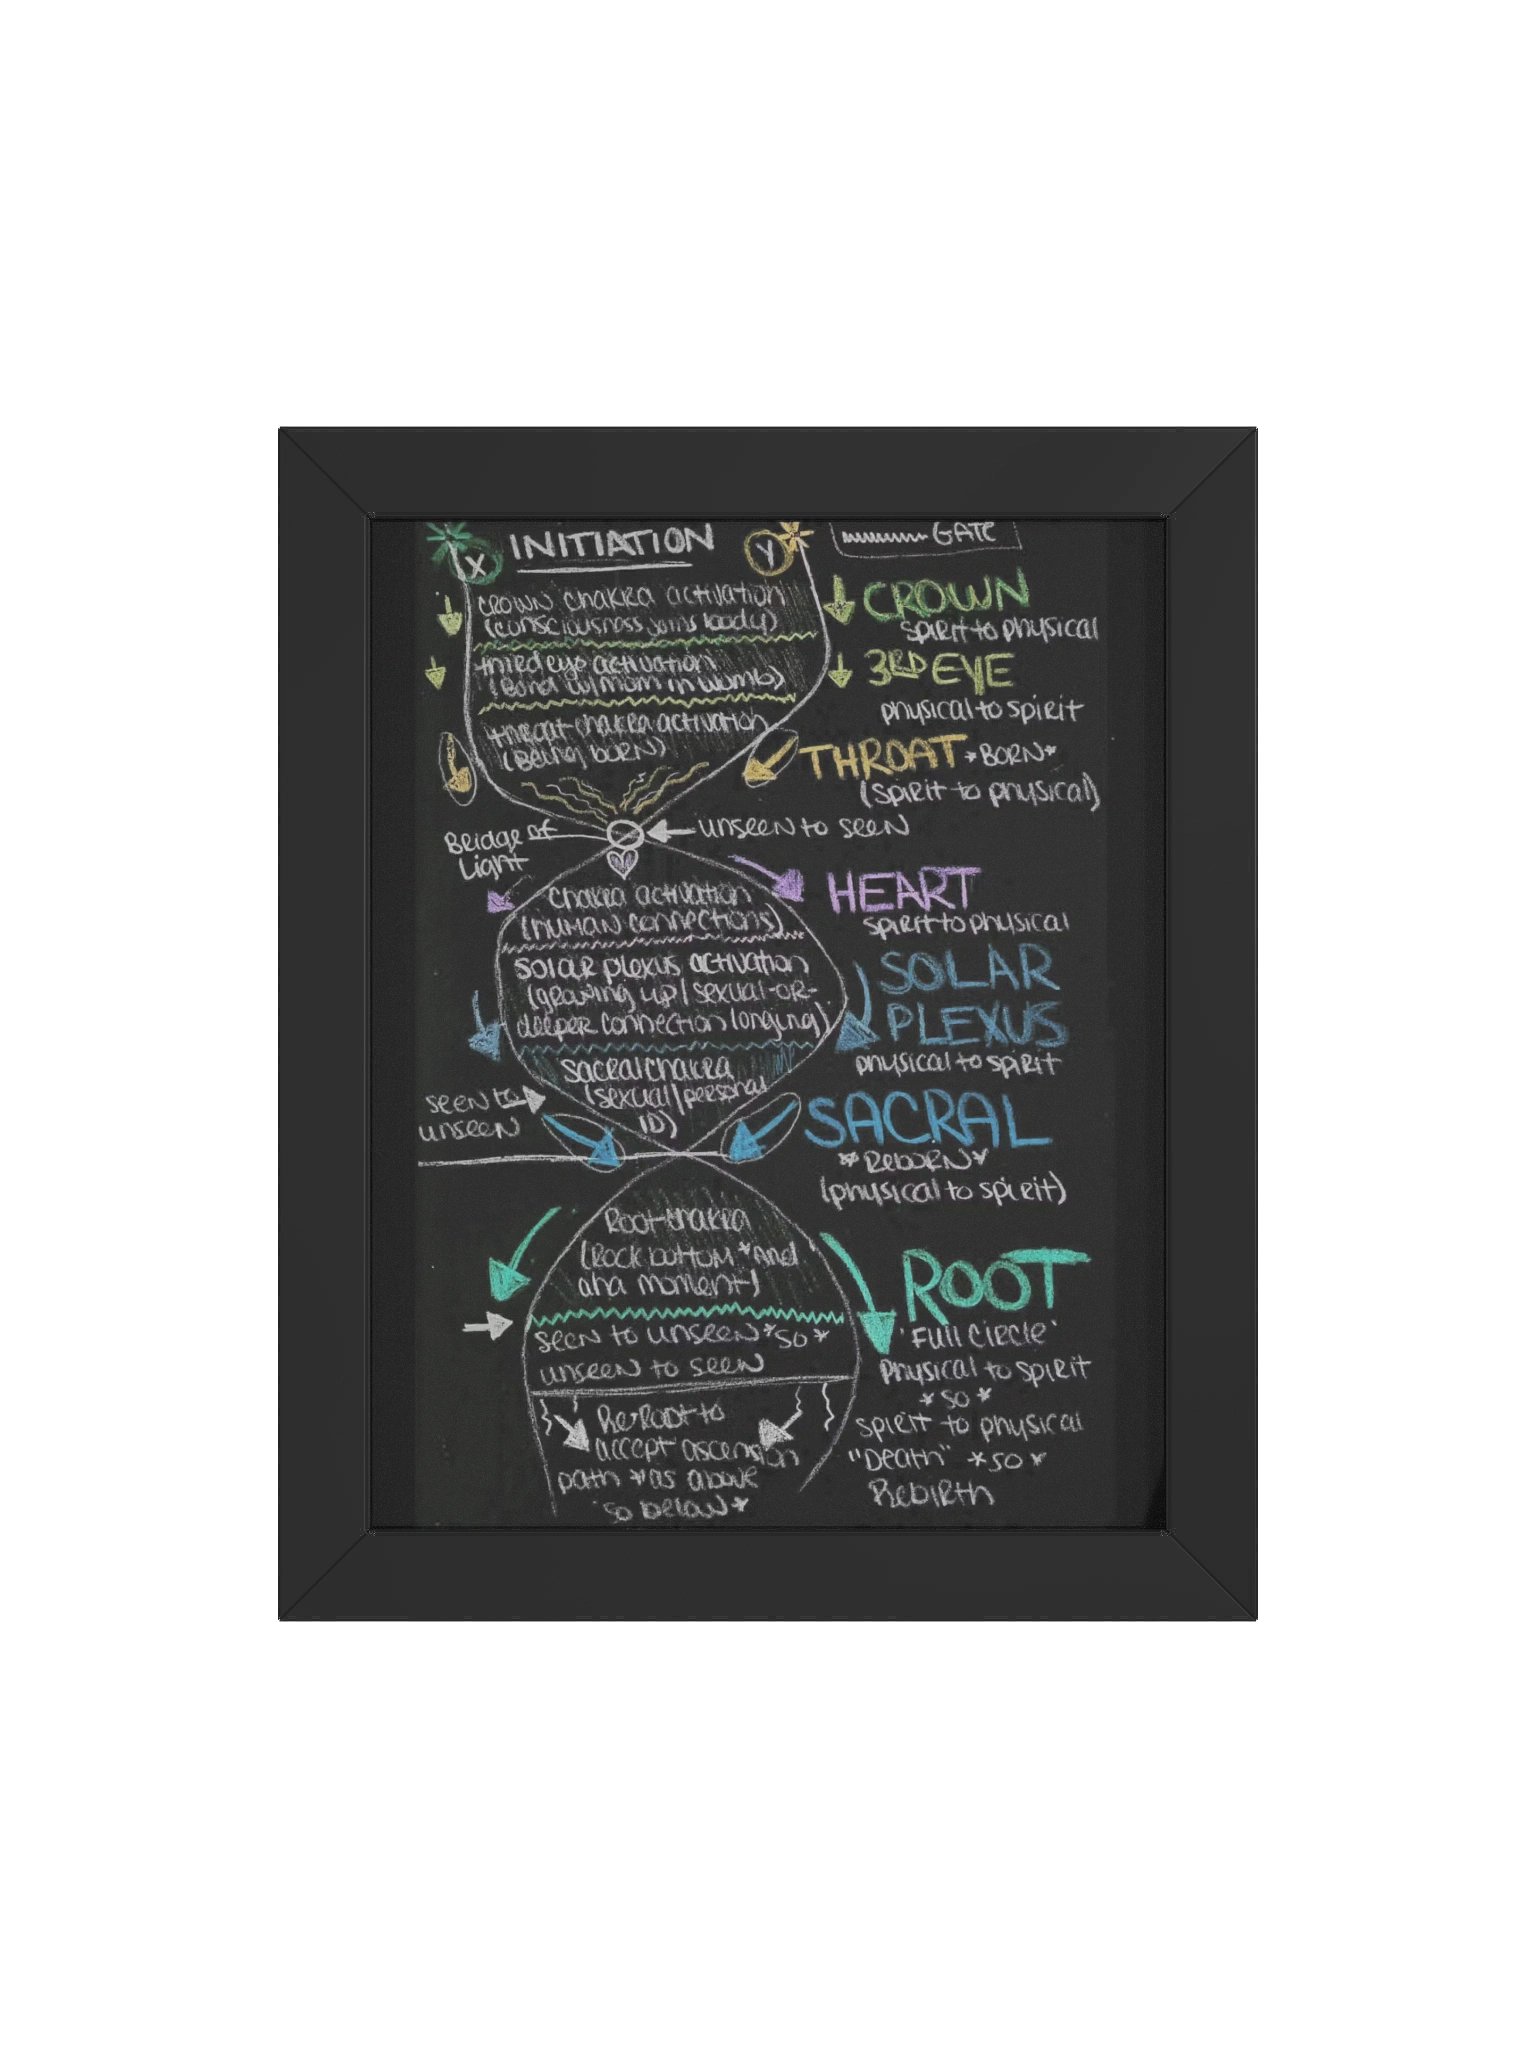 X INITIATION Y
GATE
CROWN chakra activation
(consciousness joins body)
CROWN
spirit to physical
third eye activation
(Bond w/mom in womb)
3RD EYE
physical to spirit
throat chakra activation
(Being born)
THROAT *BORN*
(spirit to physical)
Bridge of
Light
unseen to seen
Chakra activation
(human connections)
HEART
spirit to physical
solar plexus activation
(growing up/sexual-or-
deeper connection longing)
SOLAR
PLEXUS
physical to spirit
sacral chakra
(sexual/personal
ID)
seen to
unseen
SACRAL
*Reborn*
(physical to spirit)
Root chakra
(Rock bottom *and
aha moment)
ROOT
'Full circle'
physical to spirit
*so*
spirit to physical
"Death" *so*
Rebirth
seen to unseen *so*
unseen to seen
Re-Root to
accept ascension
path *as above
so below*